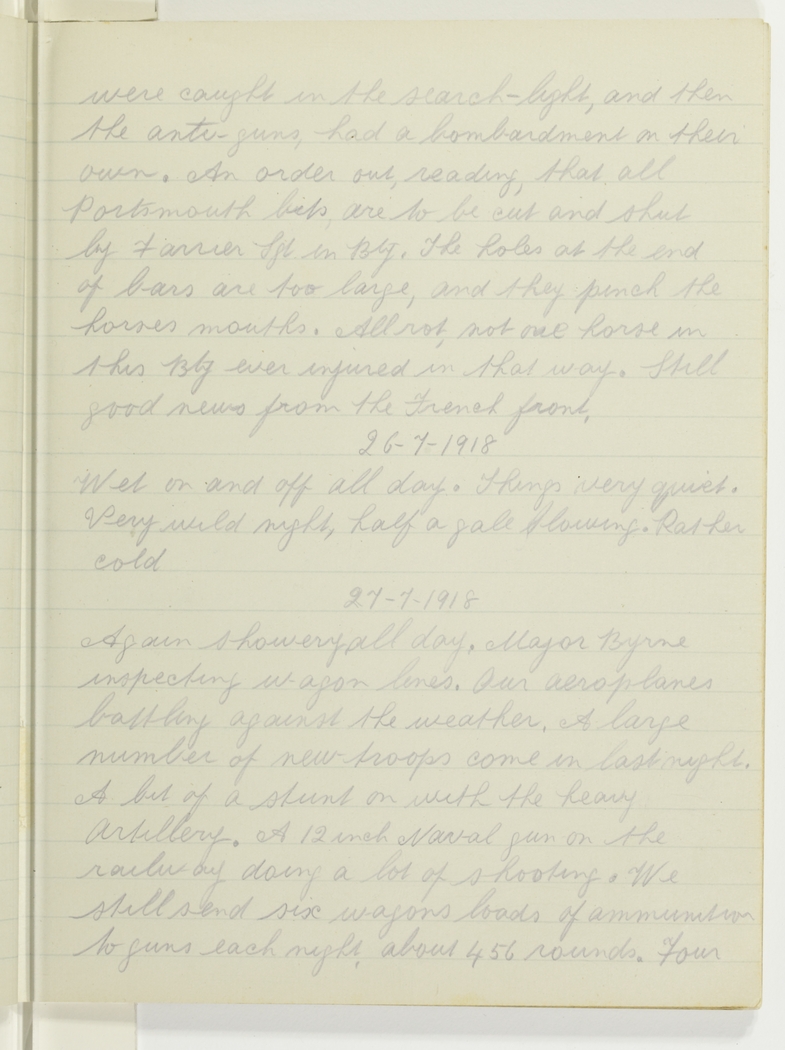 were caught in the search-light, and then
the anti-guns, had a bombardment on their
own. An order out, reading, that all
Portsmouth bits, are to be cut and shut
by Farrier Sgt in Bty. The holes at the end
of bars are too large, and they pinch the
horses mouths. All rot, not one horse in
this Bty ever injured in that way. Still
good news from the French front.
26-7-1918
Wet on and off all day. Things very quiet.
Very wild night, half a gale blowing. Rather
cold
27-7-1918
Again showery all day. Major Byrne
inspecting wagon lines. Our aeroplanes
battling against the weather. A large
number of new troops come in last night.
A bit of a stunt on with the heavy
Artillery. A 12 inch Naval gun on the
railway doing a lot of shooting. We
still send six wagons loads of ammunition
to guns each night, about 456 rounds. Four